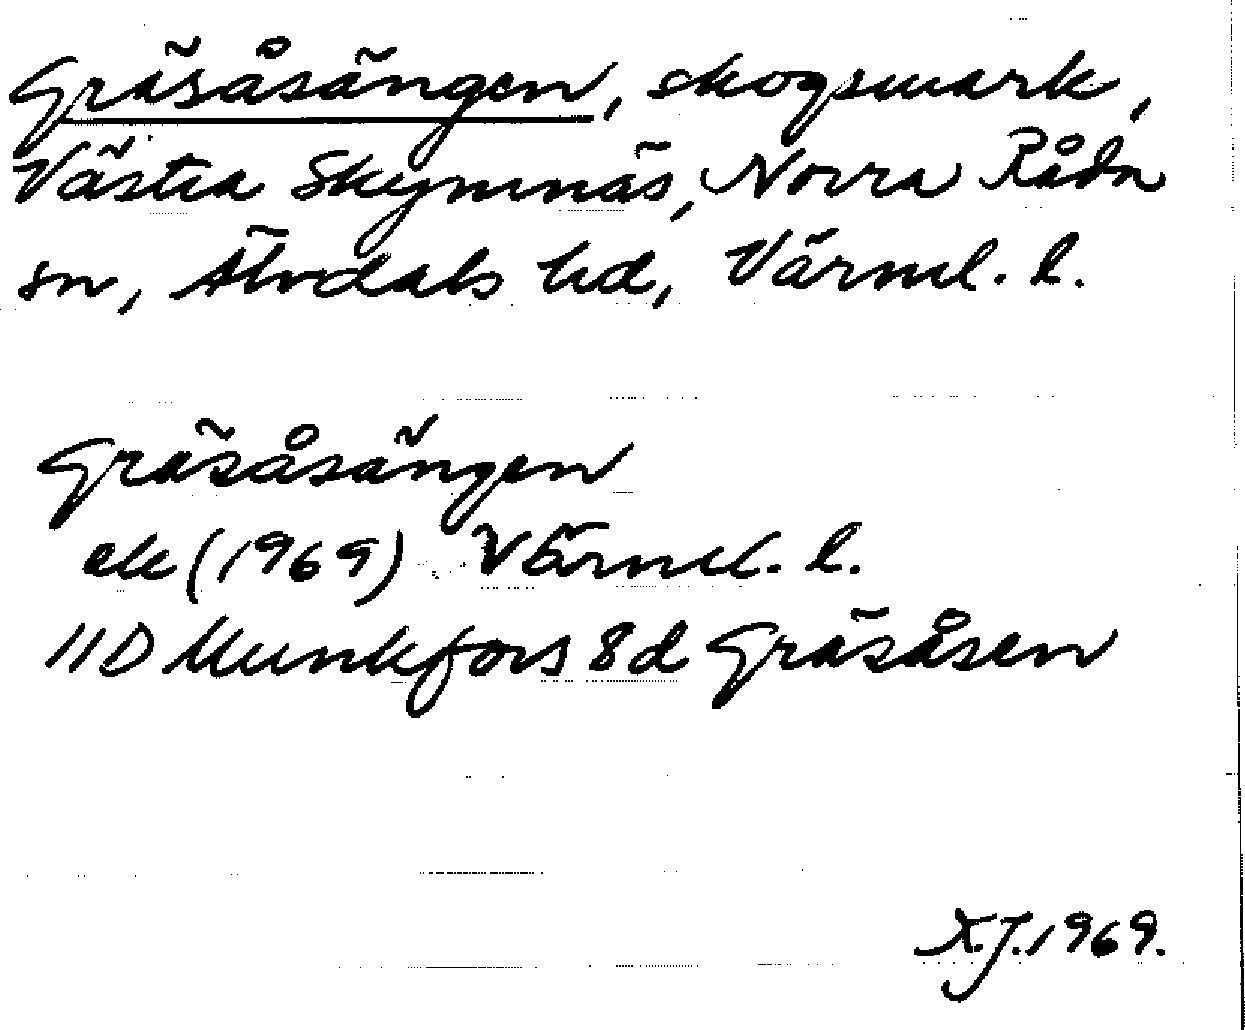 Gräsåsängen, skogsmark,
Västra Skymnäs, Norra Råda
sn, Älvdals hd, Värml. l.
Gräsåsängen
ek (1969) Värml. l.
11D Munkfors 8d Gräsåsen
X.J. 1969.